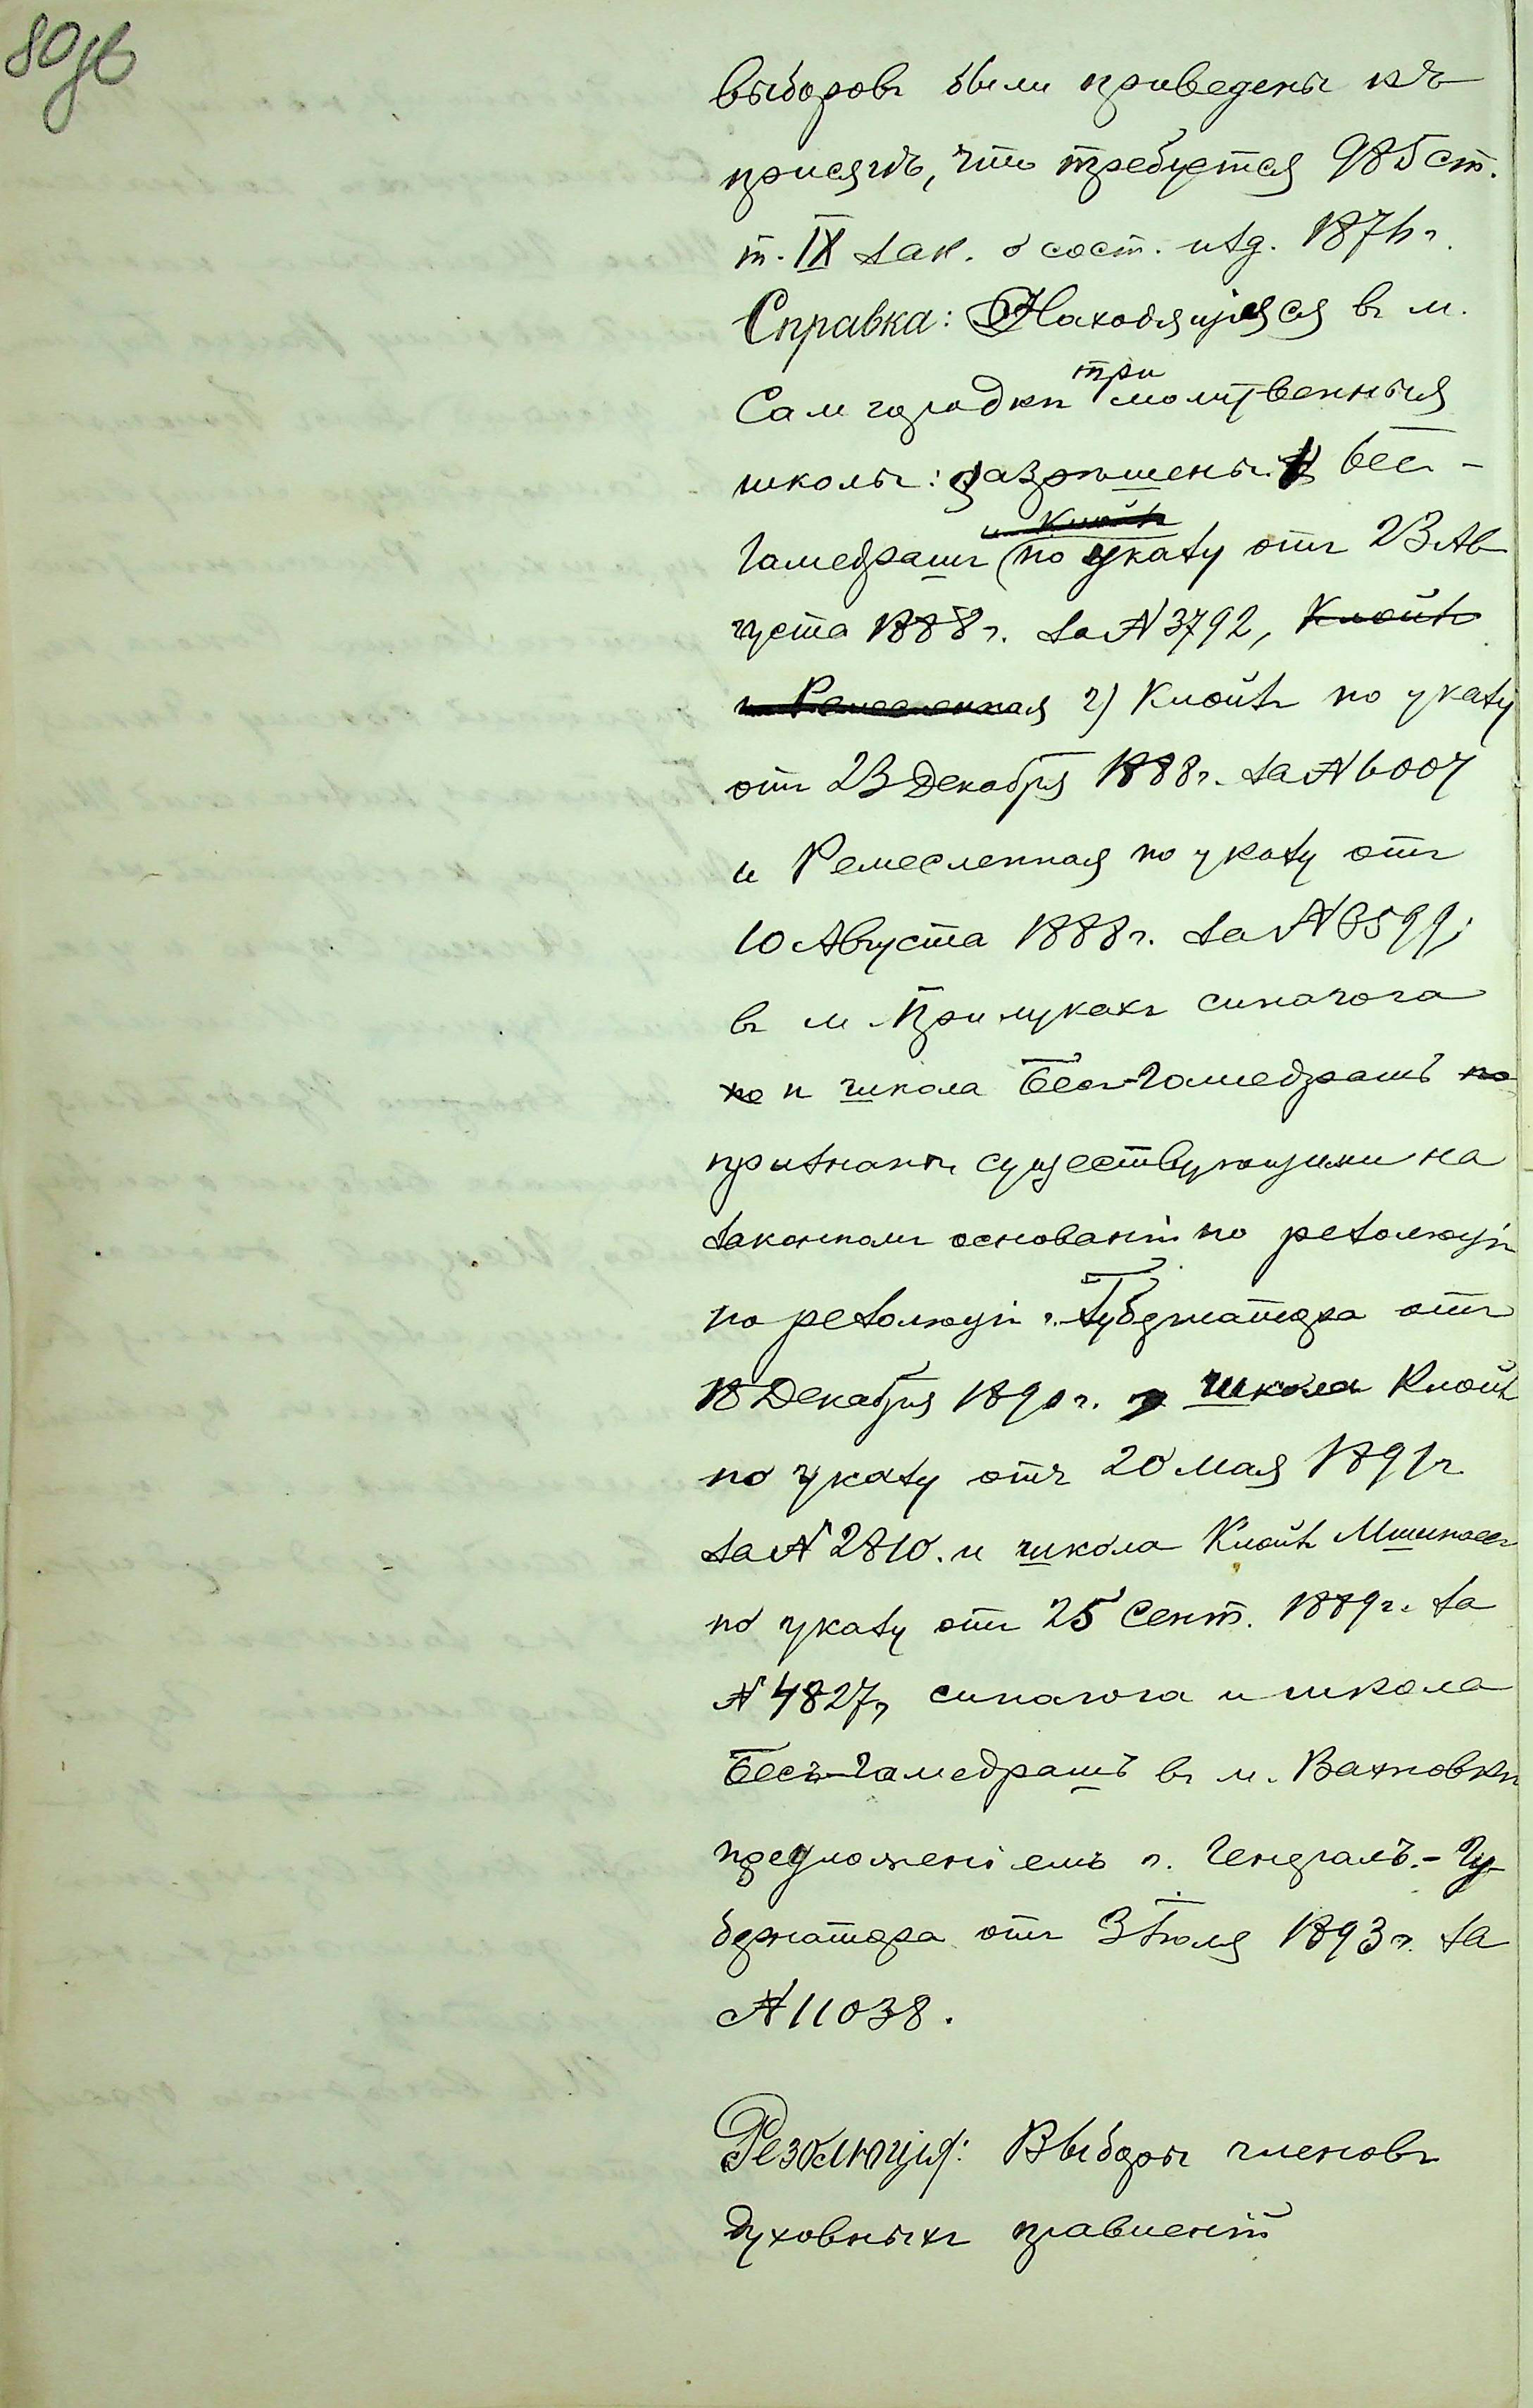 80 об
выборовъ были приведены къ
присягѣ, что требуется 985 ст.
т. IX зак. о сост. изд. 1876 г.
Справка: Находящіяся въ м.
Самгородкѣ три молитвенныя
школы: разрѣшены: Бесъ-
гамедрашъ по указу отъ 23 Ав
густа 1888 г. за № 3792, Клойзъ
и Ремесленная 2) Клойзъ по указу
отъ 23 Декабря 1888 г. за № 6007
и Ремесленная по указу отъ
10 Августа 1888 г. за № 3599;
въ м. Прилукахъ синагога
по и школа Бесъ-Гамедрашъ по
признаны существующими на
законномъ основаніи по резолюціи
по резолюціи г. Губернатора отъ
18 Декабря 1890 г. школа Клойзъ
по указу отъ 20 мая 1891 г.
за № 2810. и школа Клойзъ
по указу отъ 25 Сент. 1889 г. за
№ 4827, синагога и школа
Бесъ-гамедрашъ въ м. Вахновкѣ
предложеніемъ г. Генералъ-Гу
бернатора отъ 3 Іюля 1893 г. за
№ 11038.
Резолюція: Выборы членовъ
духовныхъ правленій